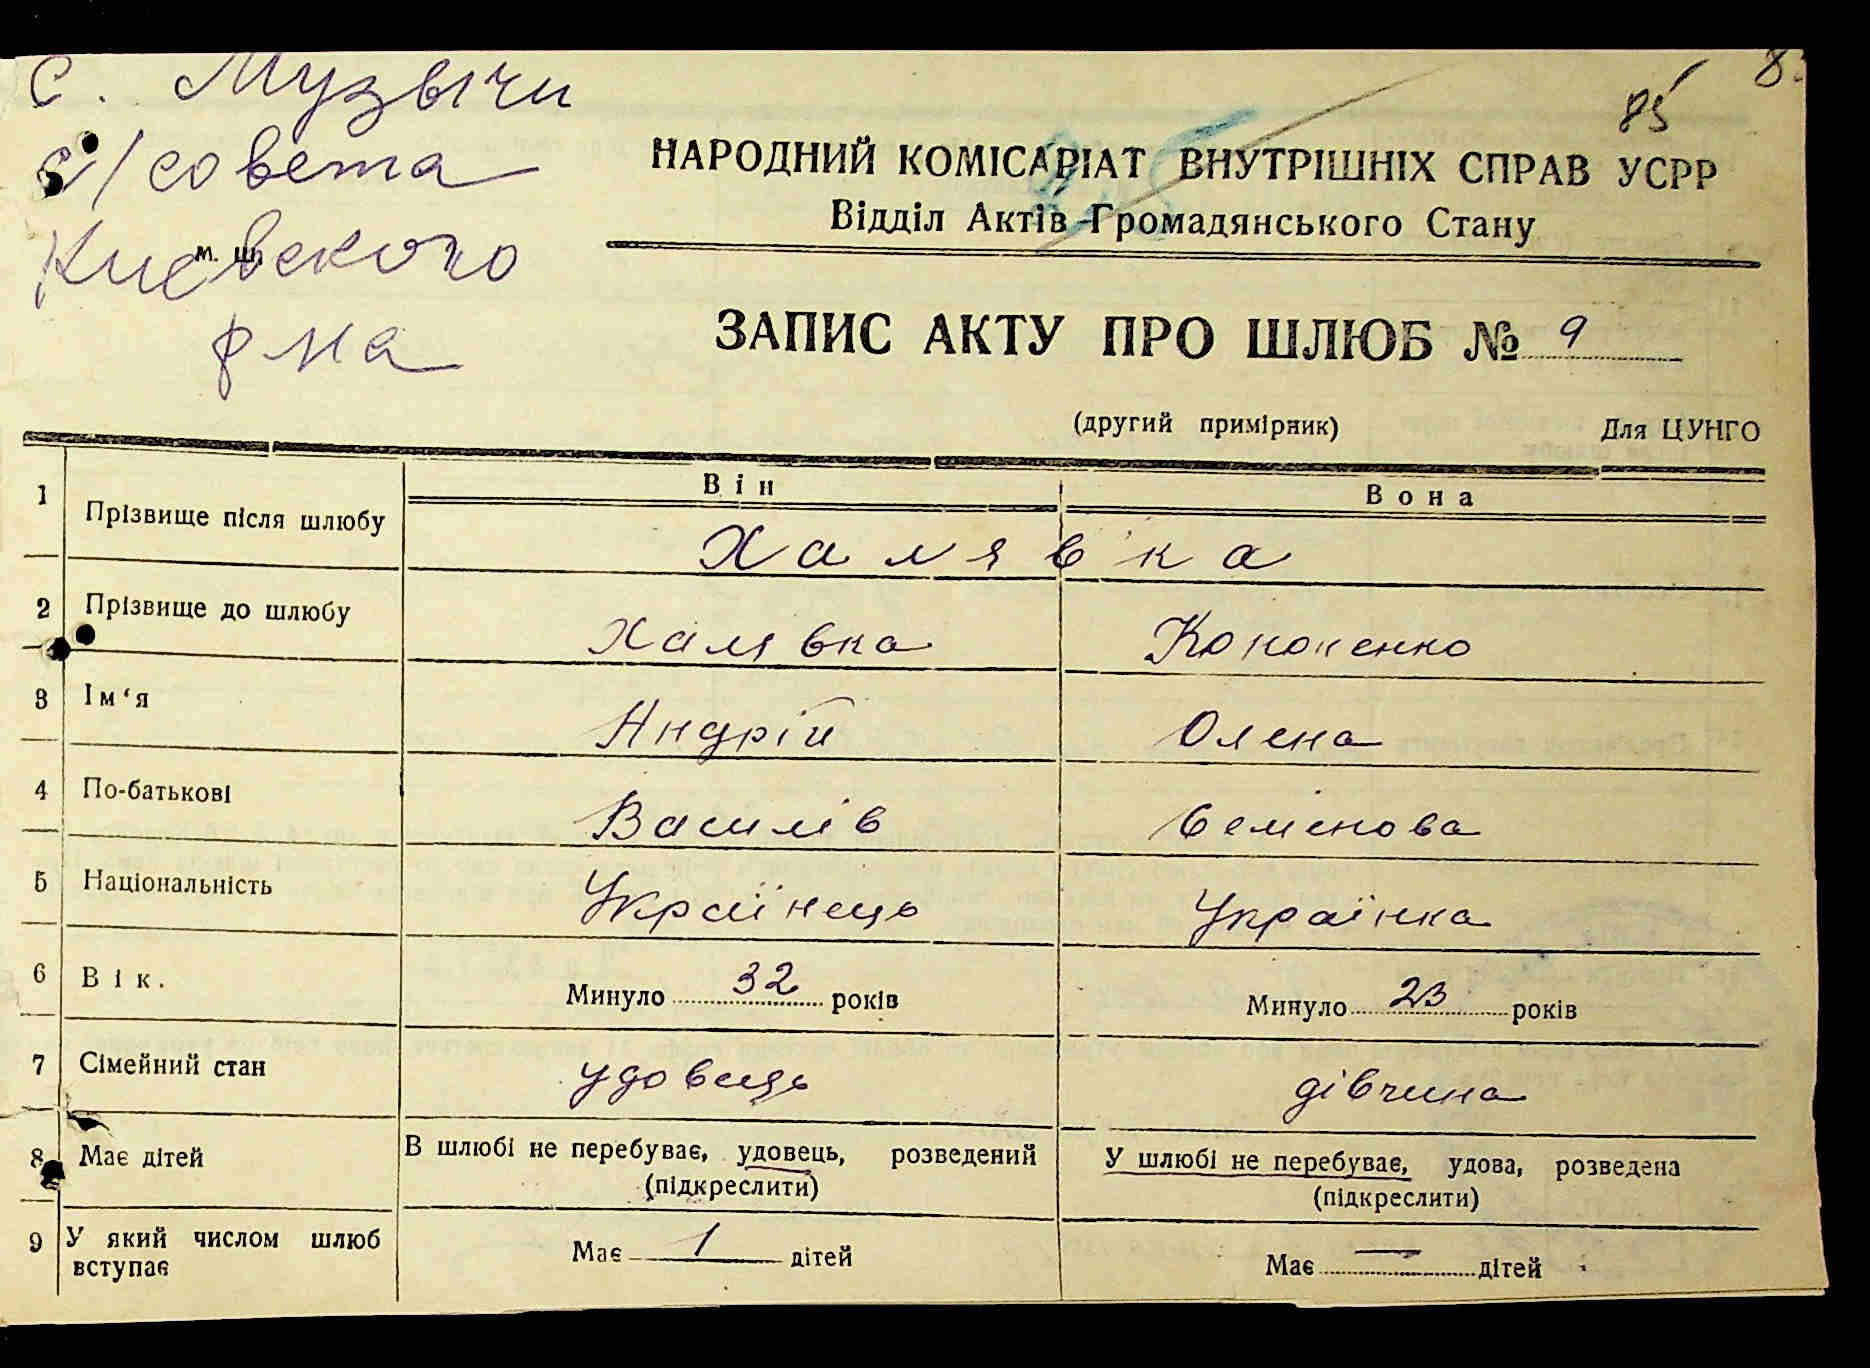 с. Музычи
с/совета
Киевского
м. ш.
р-на
85
8
НАРОДНИЙ КОМІСАРІАТ ВНУТРІШНІХ СПРАВ УСРР
Відділ Актів Громадянського Стану
ЗАПИС АКТУ ПРО ШЛЮБ № 9
(другий примірник) Для ЦУНГО
Він Вона
1 Прізвище після шлюбу Халявка
2 Прізвище до шлюбу Халявка Кононенко
3 Ім‘я Андрій Олена
4 По-батькові Василів Семенова
5 Національність Українець Українка
6 Вік. Минуло 32 років Минуло 23 років
7 Сімейний стан удовець дівчина
8 Має дітей В шлюбі не перебуває, удовець, розведений У шлюбі не перебуває, удова, розведена
(підкреслити) (підкреслити)
9 У який числом шлюб вступає Має 1 дітей Має — дітей